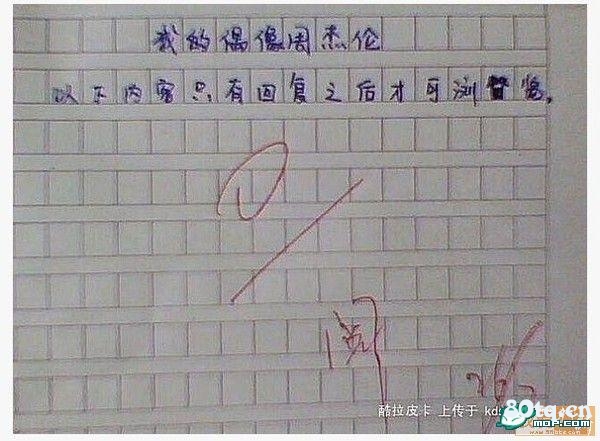 我的偶像周杰伦
以下内容只有回复之后才可浏览。
阅
酷拉皮卡 上传于 kds
80tq.cn
mop.com